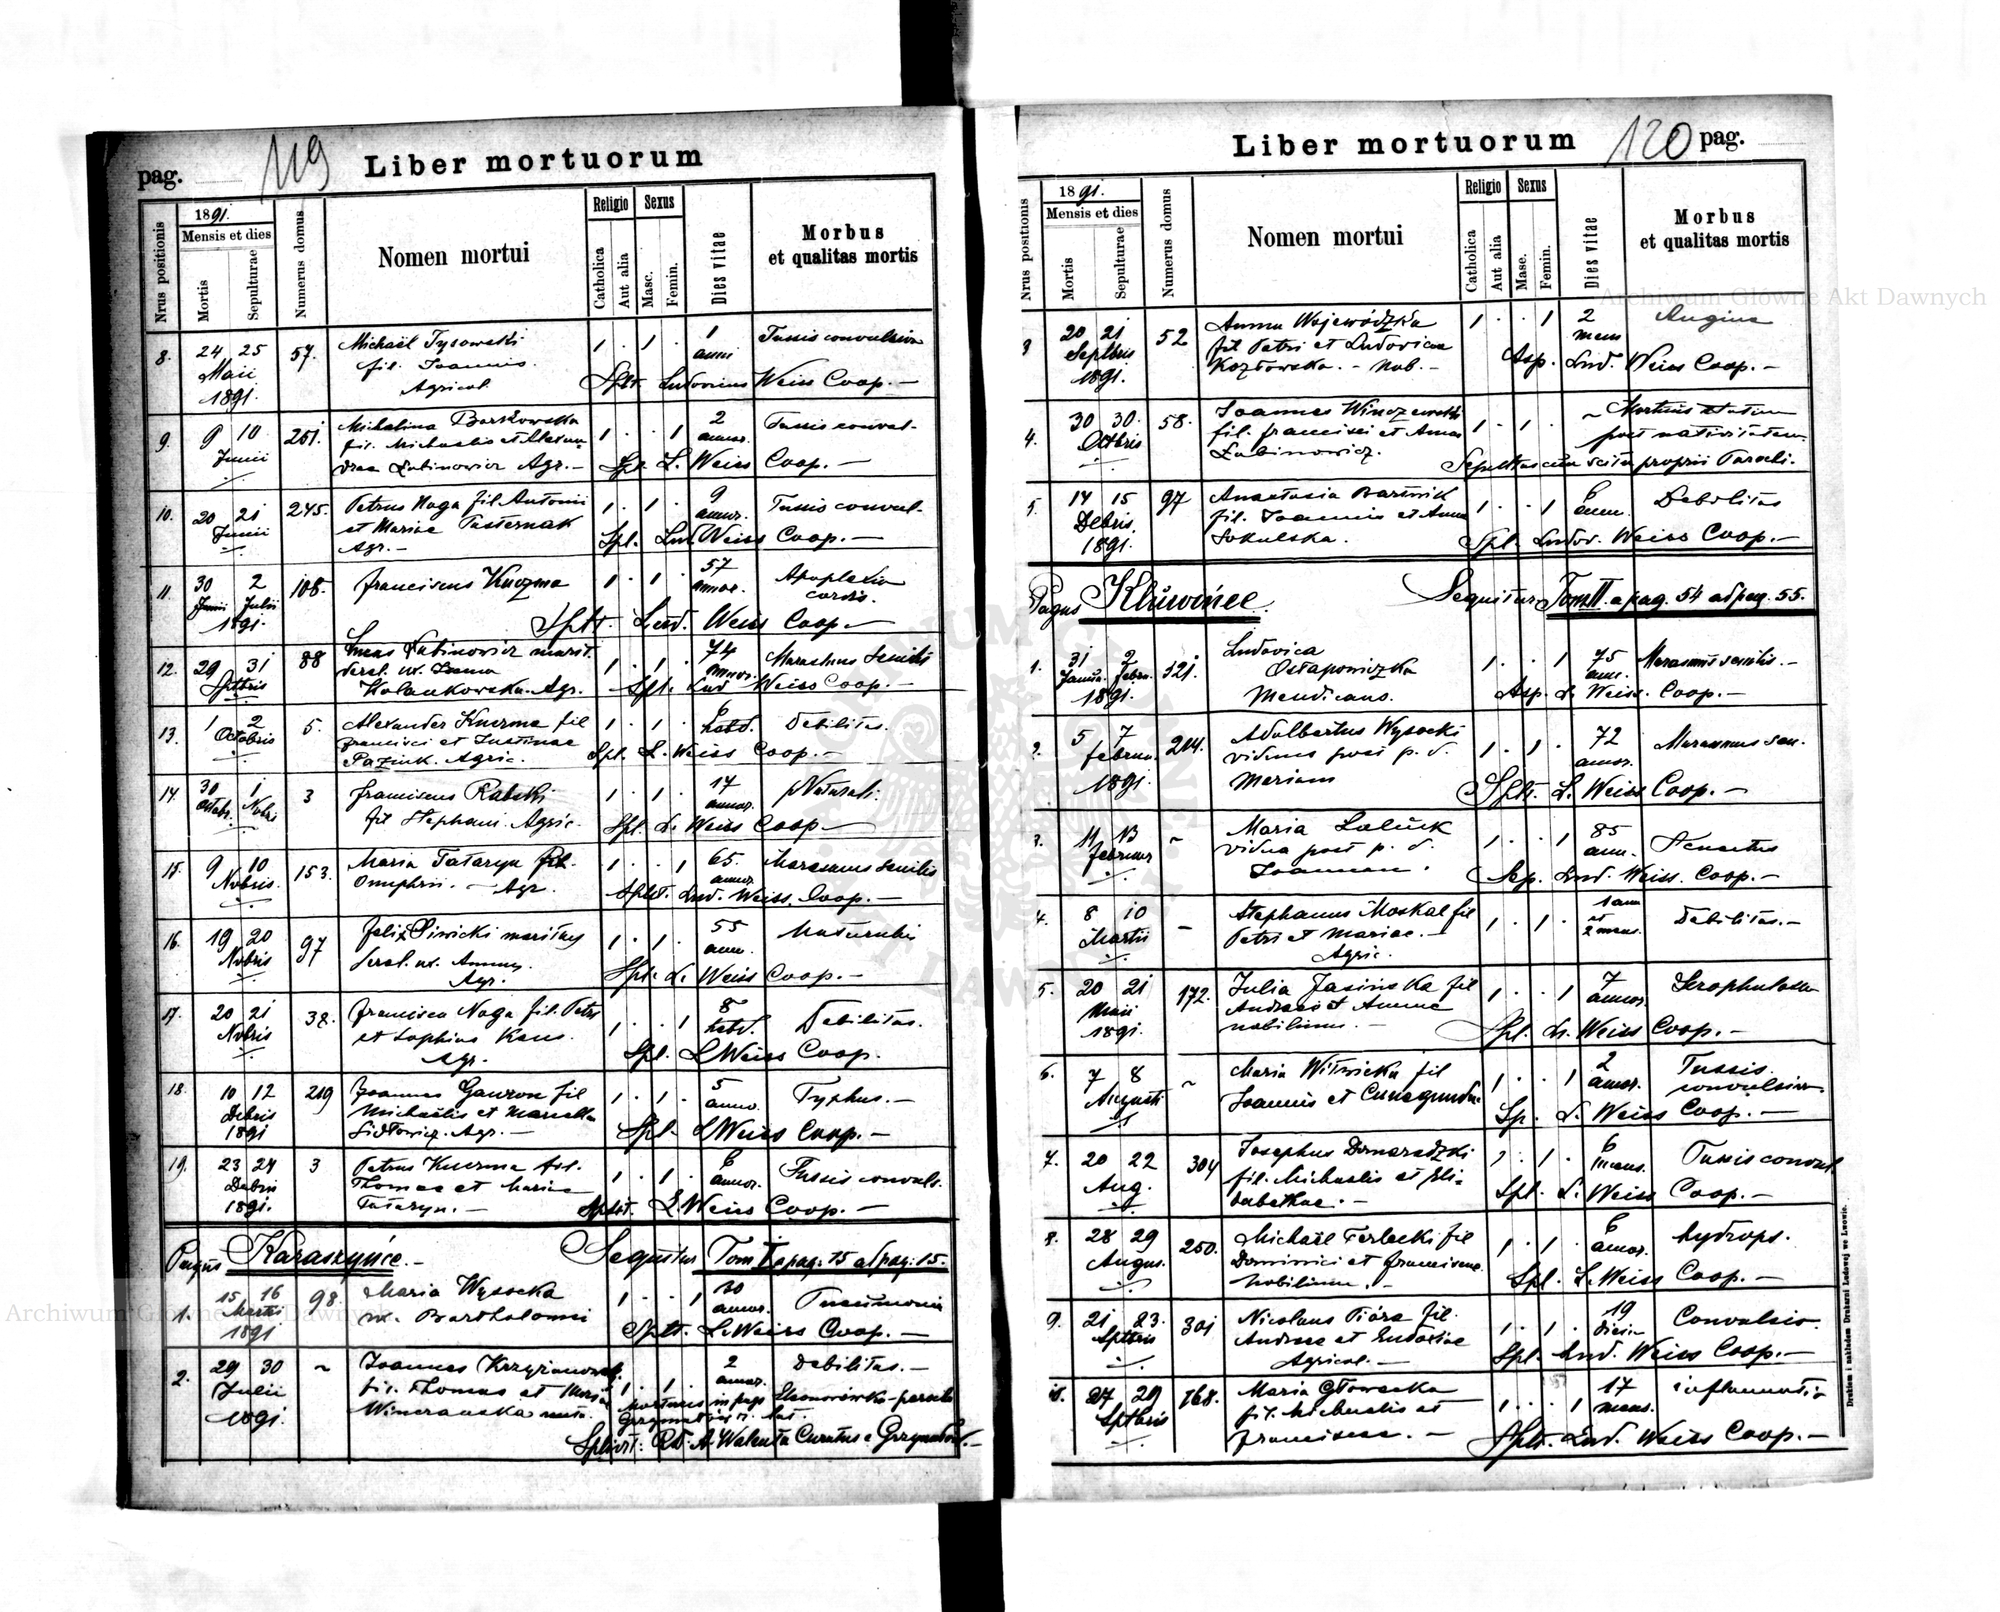 pag. 119 Liber mortuorum
Nrus positionis
1891.
Mensis et dies
Mortis
Sepulturae
Numerus domus
Nomen mortui
Religio
Catholica
Aut alia
Sexus
Masc.
Femin.
Dies vitae
Morbus
et qualitas mortis
8. 24 25 57. Michaël Tysowski 1 . 1 . 1 Tussis convulsiva
Maii fil. Joannis anni
1891. Agricol. Splt. Ludovicus Weiss Coop. —
9. 9 10 251. Michalina Borkowska 1 . . 1 2 Tussis convul-
Junii fil. Michaelis et Alexan- annor.
drae Łabinowicz Agr. — Spl. L. Weiss Coop. —
10. 20 21 245. Petrus Naga fil. Antonii 1 . 1 . 9 Tussis convul-
Junii et Mariae Pasternak annor.
Agr. — Spl. Lud. Weiss Coop. —
11. 30 2 108. Franciscus Kuczma 1 . 1 . 57 Apoplexia
Junii Julii annor. cordis.
1891. Splt. Lud. Weiss Coop. —
12. 29 31 88 Lucas Łabinowicz marit. 1 . 1 . 74 Marasmus senilis
Sptbris derel. ux. annor.
Kolankowska. Agr. Splt. Lud Weiss Coop. —
13. 1 2 5. Alexander Kuczma fil 1 . 1 . 6 Debilitas.
Octobris Francisci et Justinae hebd.
Agric. Spl. L. Weiss Coop. —
14. 30 1 3 Franciscus Rabski 1 . 1 . 17 Natural.
Octobr. Nvbris fil Stephani Agric. annor.
Spl. L. Weiss Coop —
15. 9 10 153. Maria Tataryn fil. 1 . . 1 65. Marasmus senilis
Nvbris. Onuphrii. — Agr. annor.
Splt. Lud. Weiss. Coop. —
16. 19 20 97 Felix Siwicki maritus 1 . 1 . 55
Nvbris derel. ux. Annam ann.
Agr. Splt. L. Weiss Coop. —
17. 20 21 38. Francisca Naga fil. Petri 1 . . 1 8 Debilitas.
Nvbris et Sophiae hebd.
Agr. Spl. L Weiss Coop.
18. 10 12 219 Joannes Gawron fil 1 . 1 . 5 Typhus. —
Debris Michaëlis et Marcella anno.
1891 Agr. — Spl. L Weiss Coop. —
19. 23 24 3 Petrus Kuczma fil. 1 . 1 . 6 Tussis convuls.
Debris Thomae et Mariae annor.
1891. Tataryn. — Splt. L. Weiss Coop. —
Pagus Karaszyńce. — Sequitur Tom I a pag. 15 ad pag. 15.
1. 15 16 98. Maria Wysocka 1 . . 1 30 Pneumonia
Martii ux. Bartholomei annor.
1891 Splt. L. Weiss Coop. —
2. 29 30 ~ Joannes 1 . 1 . 2 Debilitas. —
Julii fil. Thomae et annor.
1891. Mortuus in pago
Splivit: A. Walenta Curatus e
Liber mortuorum 120 pag.
Nrus positionis
1891.
Mensis et dies
Mortis
Sepulturae
Numerus domus
Nomen mortui
Religio
Catholica
Aut alia
Sexus
Masc.
Femin.
Dies vitae
Morbus
et qualitas mortis
3 20 21 52 Anna Wojewódzka 1 . . 1 2 Angina
Septbris fil Petri et Ludovicae mens
1891. Kozłowska. — Nob. — Asp. Lud. Weiss Coop. —
4. 30 30. 58. Joannes 1 . 1 . ~ Mortuus statim
Octbris fil. Francisci et Annae post nativitatem.
Łabinowicz. Sepultus cum scitu proprii Parochi.
5. 14 15 97 Anastasia Bartnik 1 . . 1 6 Debilitas
Debris. fil. Joannis et Anna ann.
1891. Sokulska. Spl. Ludov. Weiss Coop. —
Pagus Kluwińce. Sequitur Tom II. a pag. 54 ad pag. 55.
1. 31 2 321. Ludovica 1 . . 1 75 Marasmus senilis. —
Ostapowiczka ann.
1891. Mendicans. Asp. L. Weiss. Coop. —
2. 5 7 214. Adalbertus Wysocki 1 . 1 . 72 Marasmus sen.
Februa. viduus post p. d. annor.
1891. Mariam Splt. L. Weiss Coop. —
3. 11 13 ~ Maria 1 . . 1 85 Senectus
Februar vidua post p. d. ann.
Joannem. Sep. Lud. Weiss. Coop. —
4. 8 10 — Stephanus Moskal fil 1 . 1 . 1 ann Debilitas. —
Martii Petri et Mariae. — et
Agric. 2 mens.
5. 20 21 172. Julia Jasińska fil 1 . . 1 7
Maii Andreae et Annae annor.
1891. nobilium. — Spl. L. Weiss Coop. —
6. 7 8 ~ Maria Wilnicka fil 1 . . 1 2 Tussis
Augusti Joannis et Cunegundae annor. convulsiva
Sp. L. Weiss Coop. —
7. 20 22 304 Josephus Domaradzki 1 . 1 . 6 Tussis convul.
Aug. fil. Michaelis et Eli- mens.
sabethae. — Spl. L. Weiss Coop. —
8. 28 29 250. Michaël Terlecki fil 1 . 1 . 6 hydrops.
Augus. Dominici et Franciscae annor.
nobilium. — Spl. L. Weiss Coop. —
9. 21 23. 301 Nicolaus Pióra fil. 1 . 1 . 19 Convulsio.
Sptbris Andreae et Eudoxiae dierum
Agricol. — Spl. Lud. Weiss Coop. —
10. 27 29 168. Maria Głowacka 1 . . 1 17 inflammatio
Sptbris fil. Michaelis et mens.
Franciscae. — Splt. Lud. Weiss Coop. —
Drukiem i nakładem Drukarni Ludowej we Lwowie.
Archiwum Główne Akt Dawnych
Archiwum Główne Akt Dawnych